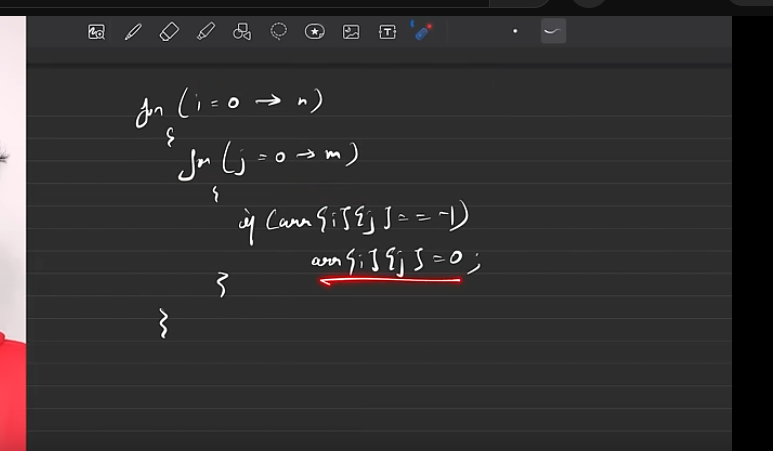 for (i = 0 → n)
{
for (j = 0 → m)
{
if (arr[i][j] == -1)
arr[i][j] = 0;
}
}